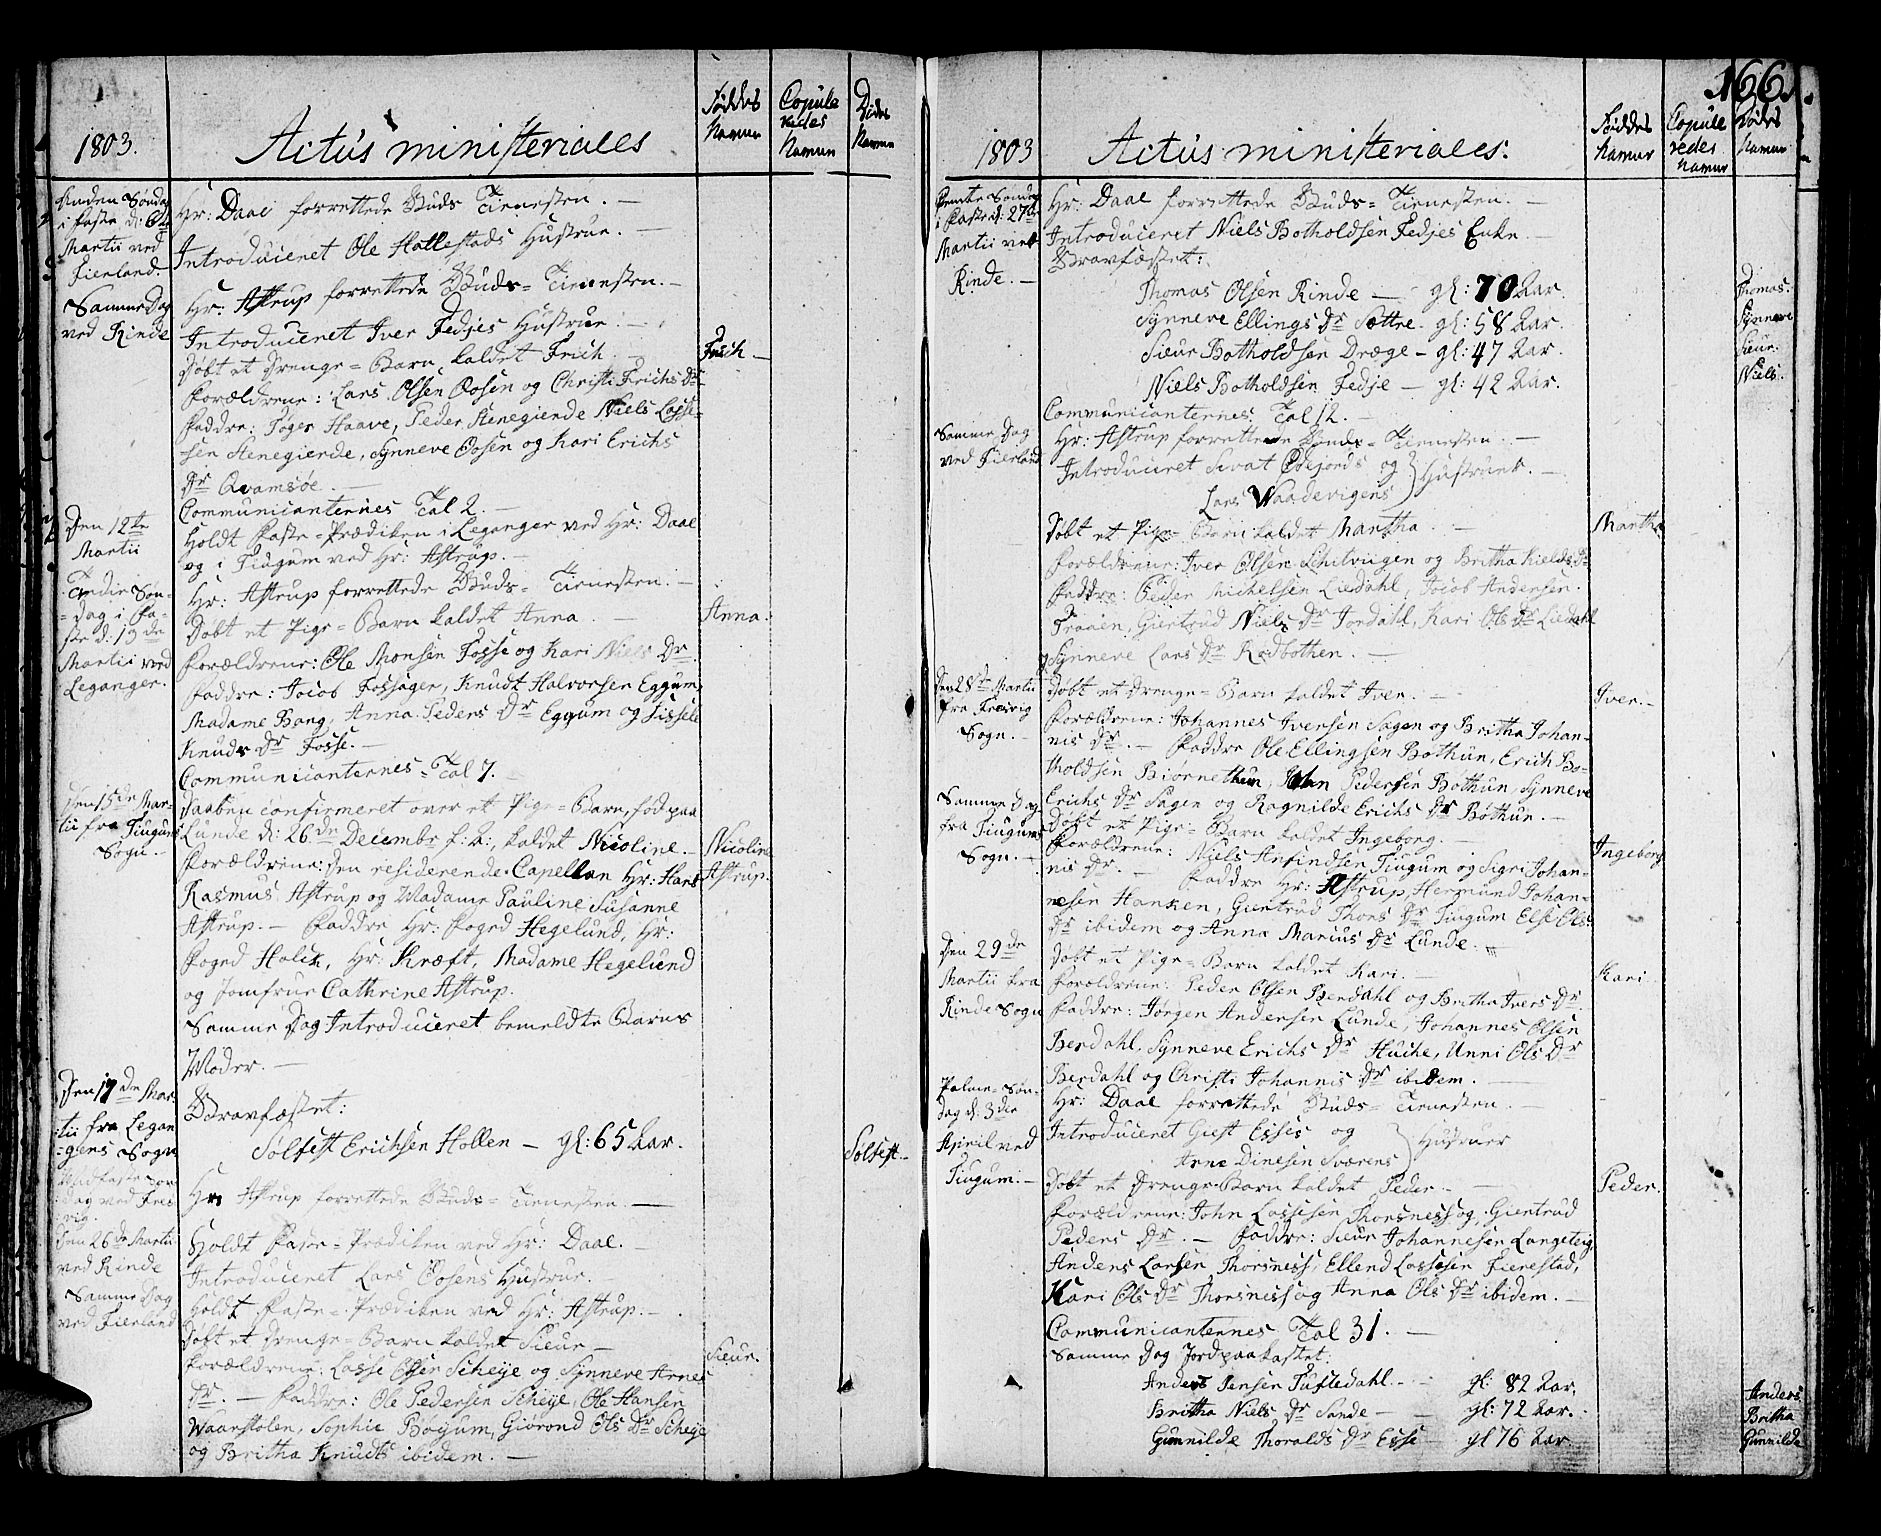 1803.
Actus ministeriales
Føddes Namne
Copuleredes Namne
Dødes Namne
Anden Søndag
i Faste d: 6te
Martii ved
Fierland.
Hr: Daae forrettede Guds-Tienesten. —
Introduceret Ole Hatlestads Hustrue. —
Samme Dag
ved Rinde
Hr: Astrup forrettede Guds-Tienesten. —
Introduceret Iver Fedjes Hustrue. —
Døbt et Drenge-Barn kaldet Frich.
Frich —
Forældrene: Lars Olsen Oosen og Christi Frichs Dr
Faddre: Tøger Haave, Peder Stenegierde Niels Lasse-
sen Stenegierde, Synneve Oosen og Kari Erichs
Dr Qvamsøe. —
Communicanternes Tal 2. —
Den 12te
Martii
Holdt Faste-Prædiken i Leganger ved Hr: Daae
og i Tiugum ved Hr: Astrup. —
Tredie Søn-
dag i Fa-
ste d: 13de
Martii ved
Leganger.
Hr: Astrup forrettede Guds-Tienesten. —
Døbt et Pige-Barn kaldet Anna. —
Anna.
Forældrene: Ole Monsen Fosse og Kari Niels Dr
Faddre: Jacob Fossøger, Knudt Halvorsen Eggum,
Madame Bang, Anna Peders Dr Eggum og Sissele
Knuds Dr Fosse. —
Communicanternes Tal 7. —
Den 15de Mar-
tii fra Tiugums
Sogn. —
Daaben confirmeret over et Pige-Barn, fød paa
Lunde d: 26de Decembr f: A:, kaldet Nicoline. —
Nicoline
Astrup.
Forældrene: den residerende Capellan Hr: Hans
Rasmus Astrup og Madame Pauline Susanne
Astrup. — Faddre Hr: Foged Hegelund, Hr:
Foged Holck, Hr: Kræft, Madame Hegelund
og Jomfrue Cathrine Astrup.
Samme Dag Introduceret bemeldte Barns
Moder. —
Den 17de Mar-
tii fra Legan-
gens Sogn
Gravfæstet:
Solfest Erichsen Hollen — gl: 65 Aar.
Solfest —
Midfaste Søn-
dag ved Frei-
vig.
Hr: Astrup forrettede Guds-Tienesten. —
Den 26de Martii
ved Rinde
Holdt Faste-Prædiken ved Hr: Daae. —
Introduceret Lars Oosens Hustrue. —
Samme Dag
ved Fierland
Holdt Faste-Prædiken ved Hr: Astrup. —
Døbt et Drenge-Barn kaldet Sieur —
Sieur.
Forældrene: Lasse Olsen Scheje og Synneve Arnes
Dr. — Faddre: Ole Pedersen Scheje, Ole Hansen
Waarstølen, Sophie Bøyum, Giörond Ols Dr Scheje
og Britha Knudts ibidem. —
166.
1803
Actus ministeriales.
Føddes Namne
Copuleredes Namne
Dødes Namne
Femte Søndag
i Faste d: 27de
Martii ved
Rinde. —
Hr: Daae forrettede Guds-Tienesten. —
Introduceret Niels Botholdsen Fedjes Enke —
Gravfæstet:
Thomas Olsen Rinde — gl: 70 Aar.
Thomas.
Synneve Ellings Dr Sættre. gl: 58 Aar.
Synneve
Sieur Botholdsen Dræge — gl: 47 Aar.
Sieur.
Niels Botholdsen Fedje — gl: 42 Aar.
Niels.
Communicanternes Tal 12. —
Samme Dag
ved Fierland
Hr: Astrup forrettede Guds-Tienesten. —
Introduceret Sivat Ødejords og
Lars Waadevigens
Hustruer. —
Døbt et Pige-Barn kaldet Martha. —
Martha
Forældrene: Iver Olsen Schitviigen og Britha Kields Dr
Faddre: Peder Michelsen Liedahl, Jacob Andersen
Traaen, Giertrud Niels Dr Jordahl, Kari Ols Dr Liedahl
og Synneve Lars Dr Rødbotten. —
Den 28de Martii
fra Freivig
Sogn. —
Døbt et Drenge-Barn kaldet Iver. —
Iver. —
Forældrene: Johannes Iversen Sagen og Britha Johan-
nis Dr. — Faddre Ole Ellingsen Bøthun, Erich Bo-
tholdsen Biørnethun, John Pedersen Bøthun, Synneve
Erichs Dr Sagen og Ragnilde Erichs Dr Bøthun. —
Samme Dag
fra Tiugums
Sogn. —
Døbt et Pige-Barn kaldet Ingeborg. —
Ingeborg
Forældrene: Niels Anfindsen Tiugum og Sigri Johan-
nis Dr. — Faddre Hr: Astrup, Hermund Johan-
nesen Hanken, Giertrud Thors Dr Tiugum Else Ols
Dr ibidem og Anna Marius Dr Lunde.
Den 29de
Martii fra
Rinde Sogn
Døbt et Pige-Barn kaldet Kari. —
Kari
Forældrene: Peder Olsen Berdahl og Britha Ivers Dr
Faddre: Jørgen Andersen Lunde, Johannes Olsen
Berdahl, Synneve Erichs Dr Huche, Unni Ols Dr
Berdahl og Christi Johannis Dr ibidem. —
Palme-Søn-
dag d: 3die
April ved
Tiugum. —
Hr: Daae forrettede Guds-Tienesten. —
Introduceret Giest Esses og
Arne Dinesen Sværens
Hustruer
Døbt et Drenge-Barn kaldet Peder. —
Peder.
Forældrene: John Lassesen Thorsness og Giertrud
Peders Dr. — Faddre: Sieur Johannesen Langeteig,
Anders Larsen Thorsness, Ellend Lassesen Fierestad,
Kari Ols Dr Thorsness og Anna Ols Dr ibidem. —
Communicanternes Tal 31. —
Samme Dag Jordpaakastet:
Anders Jensen Tuftedahl. — gl: 82 Aar.
Anders
Britha Niels Dr Sande — gl: 72 Aar.
Britha
Gunnilde Thoralds Dr Esse gl 76 Aar.
Gunnilde